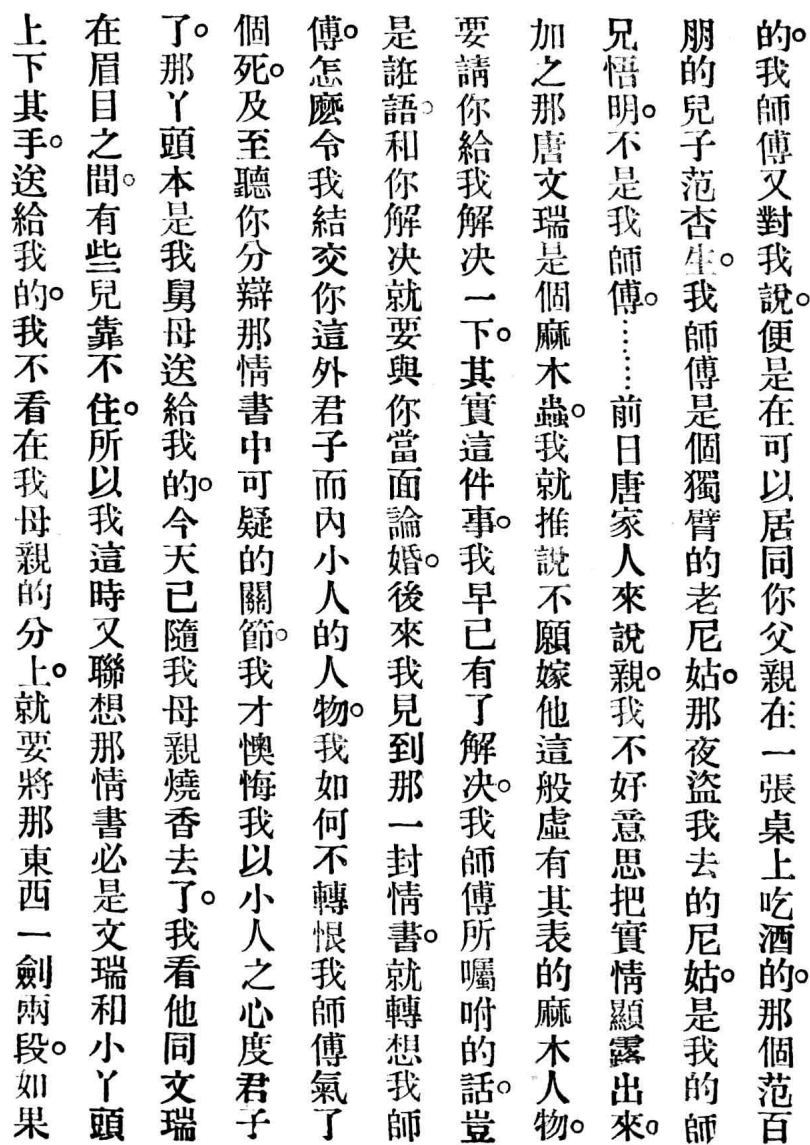 的。我師傅又對我說。便是在可以居同你父親在一張桌上吃酒的。那個范百
朋的兒子范杏生。我師傅是個獨臂的老尼姑。那夜盜我去的尼姑。是我的師
兄悟明。不是我師傅。……前日唐家人來說親。我不好意思把實情顯露出來。
加之那唐文瑞是個麻木蟲。我就推說不願嫁他這般虛有其表的麻木人物。
要請你給我解决一下。其實這件事。我早已有了解决。我師傅所囑咐的話。豈
是誑語。和你解决就要與你當面論婚。後來我見到那一封情書。就轉想我師
傅。怎麽令我結交你這外君子而內小人的人物。我如何不轉恨我師傅氣了
個死。及至聽你分辯那情書中可疑的關節。我才懊悔我以小人之心度君子
了。那丫頭本是我舅母送給我的。今天已隨我母親燒香去了。我看他同文瑞
在眉目之間。有些兒靠不住。所以我這時又聯想那情書必是文瑞和小丫頭
上下其手。送給我的。我不看在我母親的分上。就要將那東西一劍兩段。如果